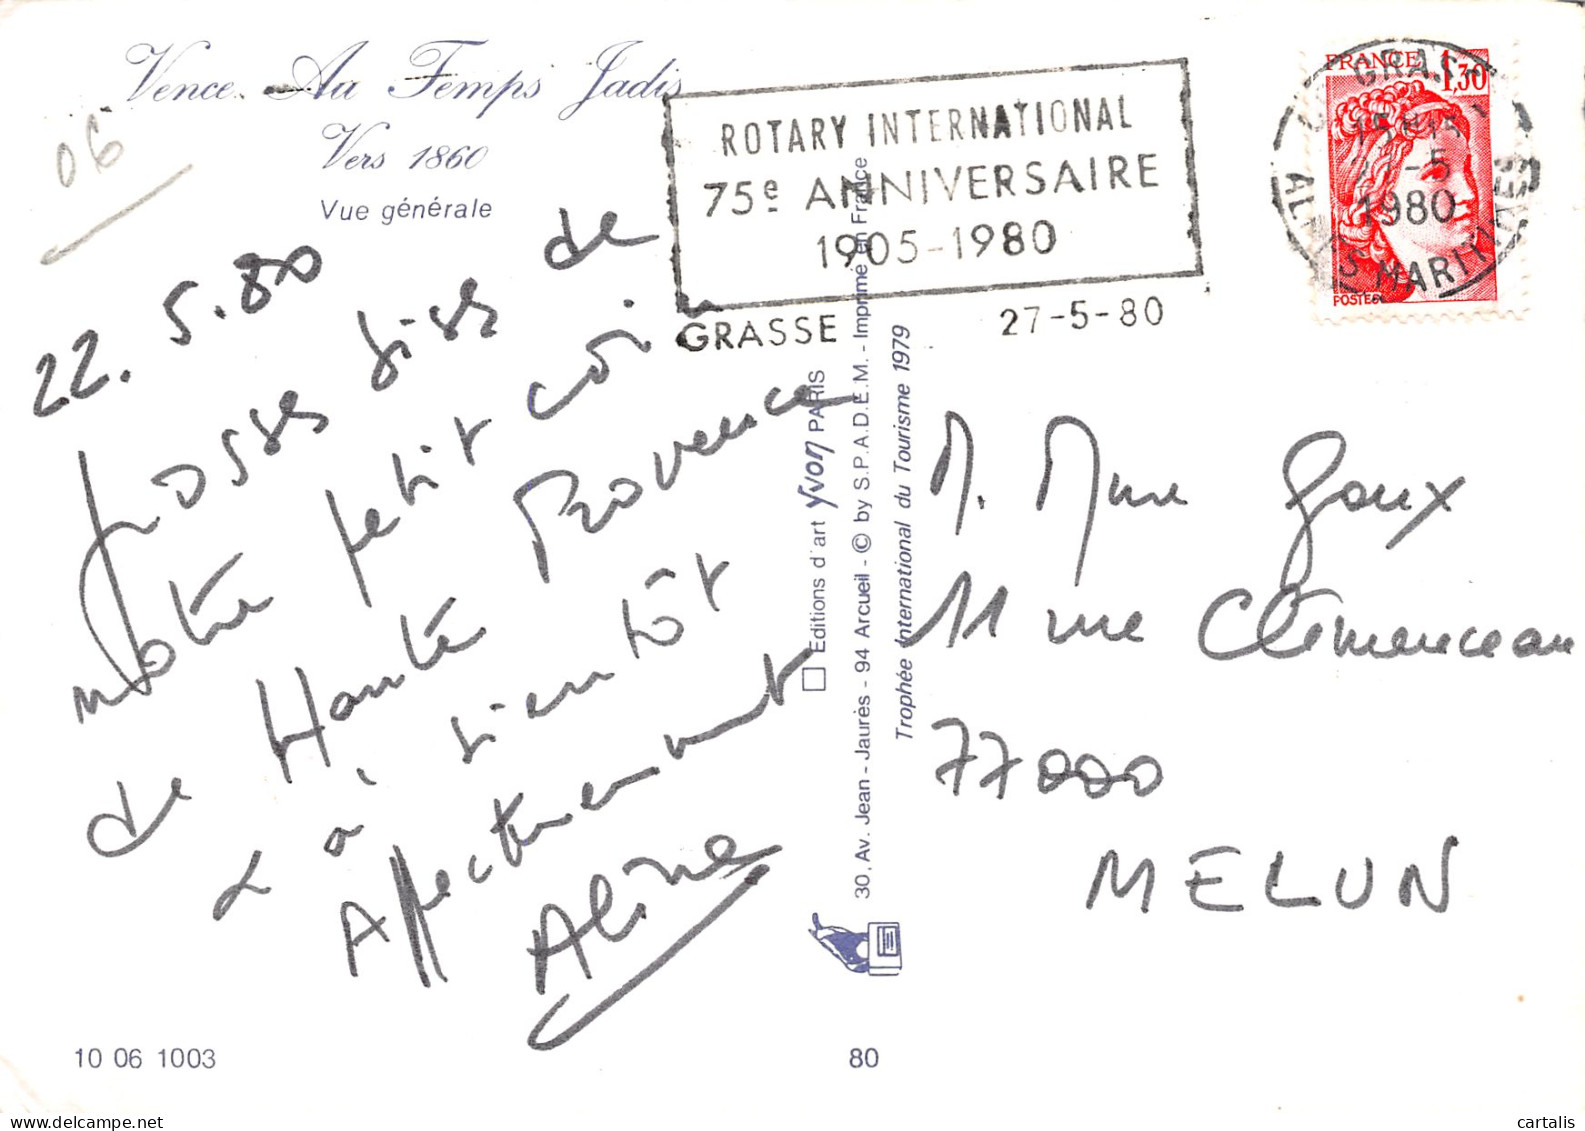 Vence. Au Temps Jadis
Vers 1860
Vue générale
06
22.5.80
Grosses bises de
notre petit coin
de Haute Provence
à bientôt
Affectueusement
Aline
ROTARY INTERNATIONAL
75e ANNIVERSAIRE
1905-1980
GRASSE 27-5-80
FRANCE 1,30
POSTES
GRASSE
15H15
27-5
1980
ALPES MARITIMES
Editions d'art Yvon PARIS
30, Av. Jean-Jaurès - 94 Arcueil - © by S.P.A.D.E.M. - Imprimé en France
Trophée International du Tourisme 1979
M. Mme Goux
11 rue Clémenceau
77000
MELUN
10 06 1003
80
delcampe.net
cartalis